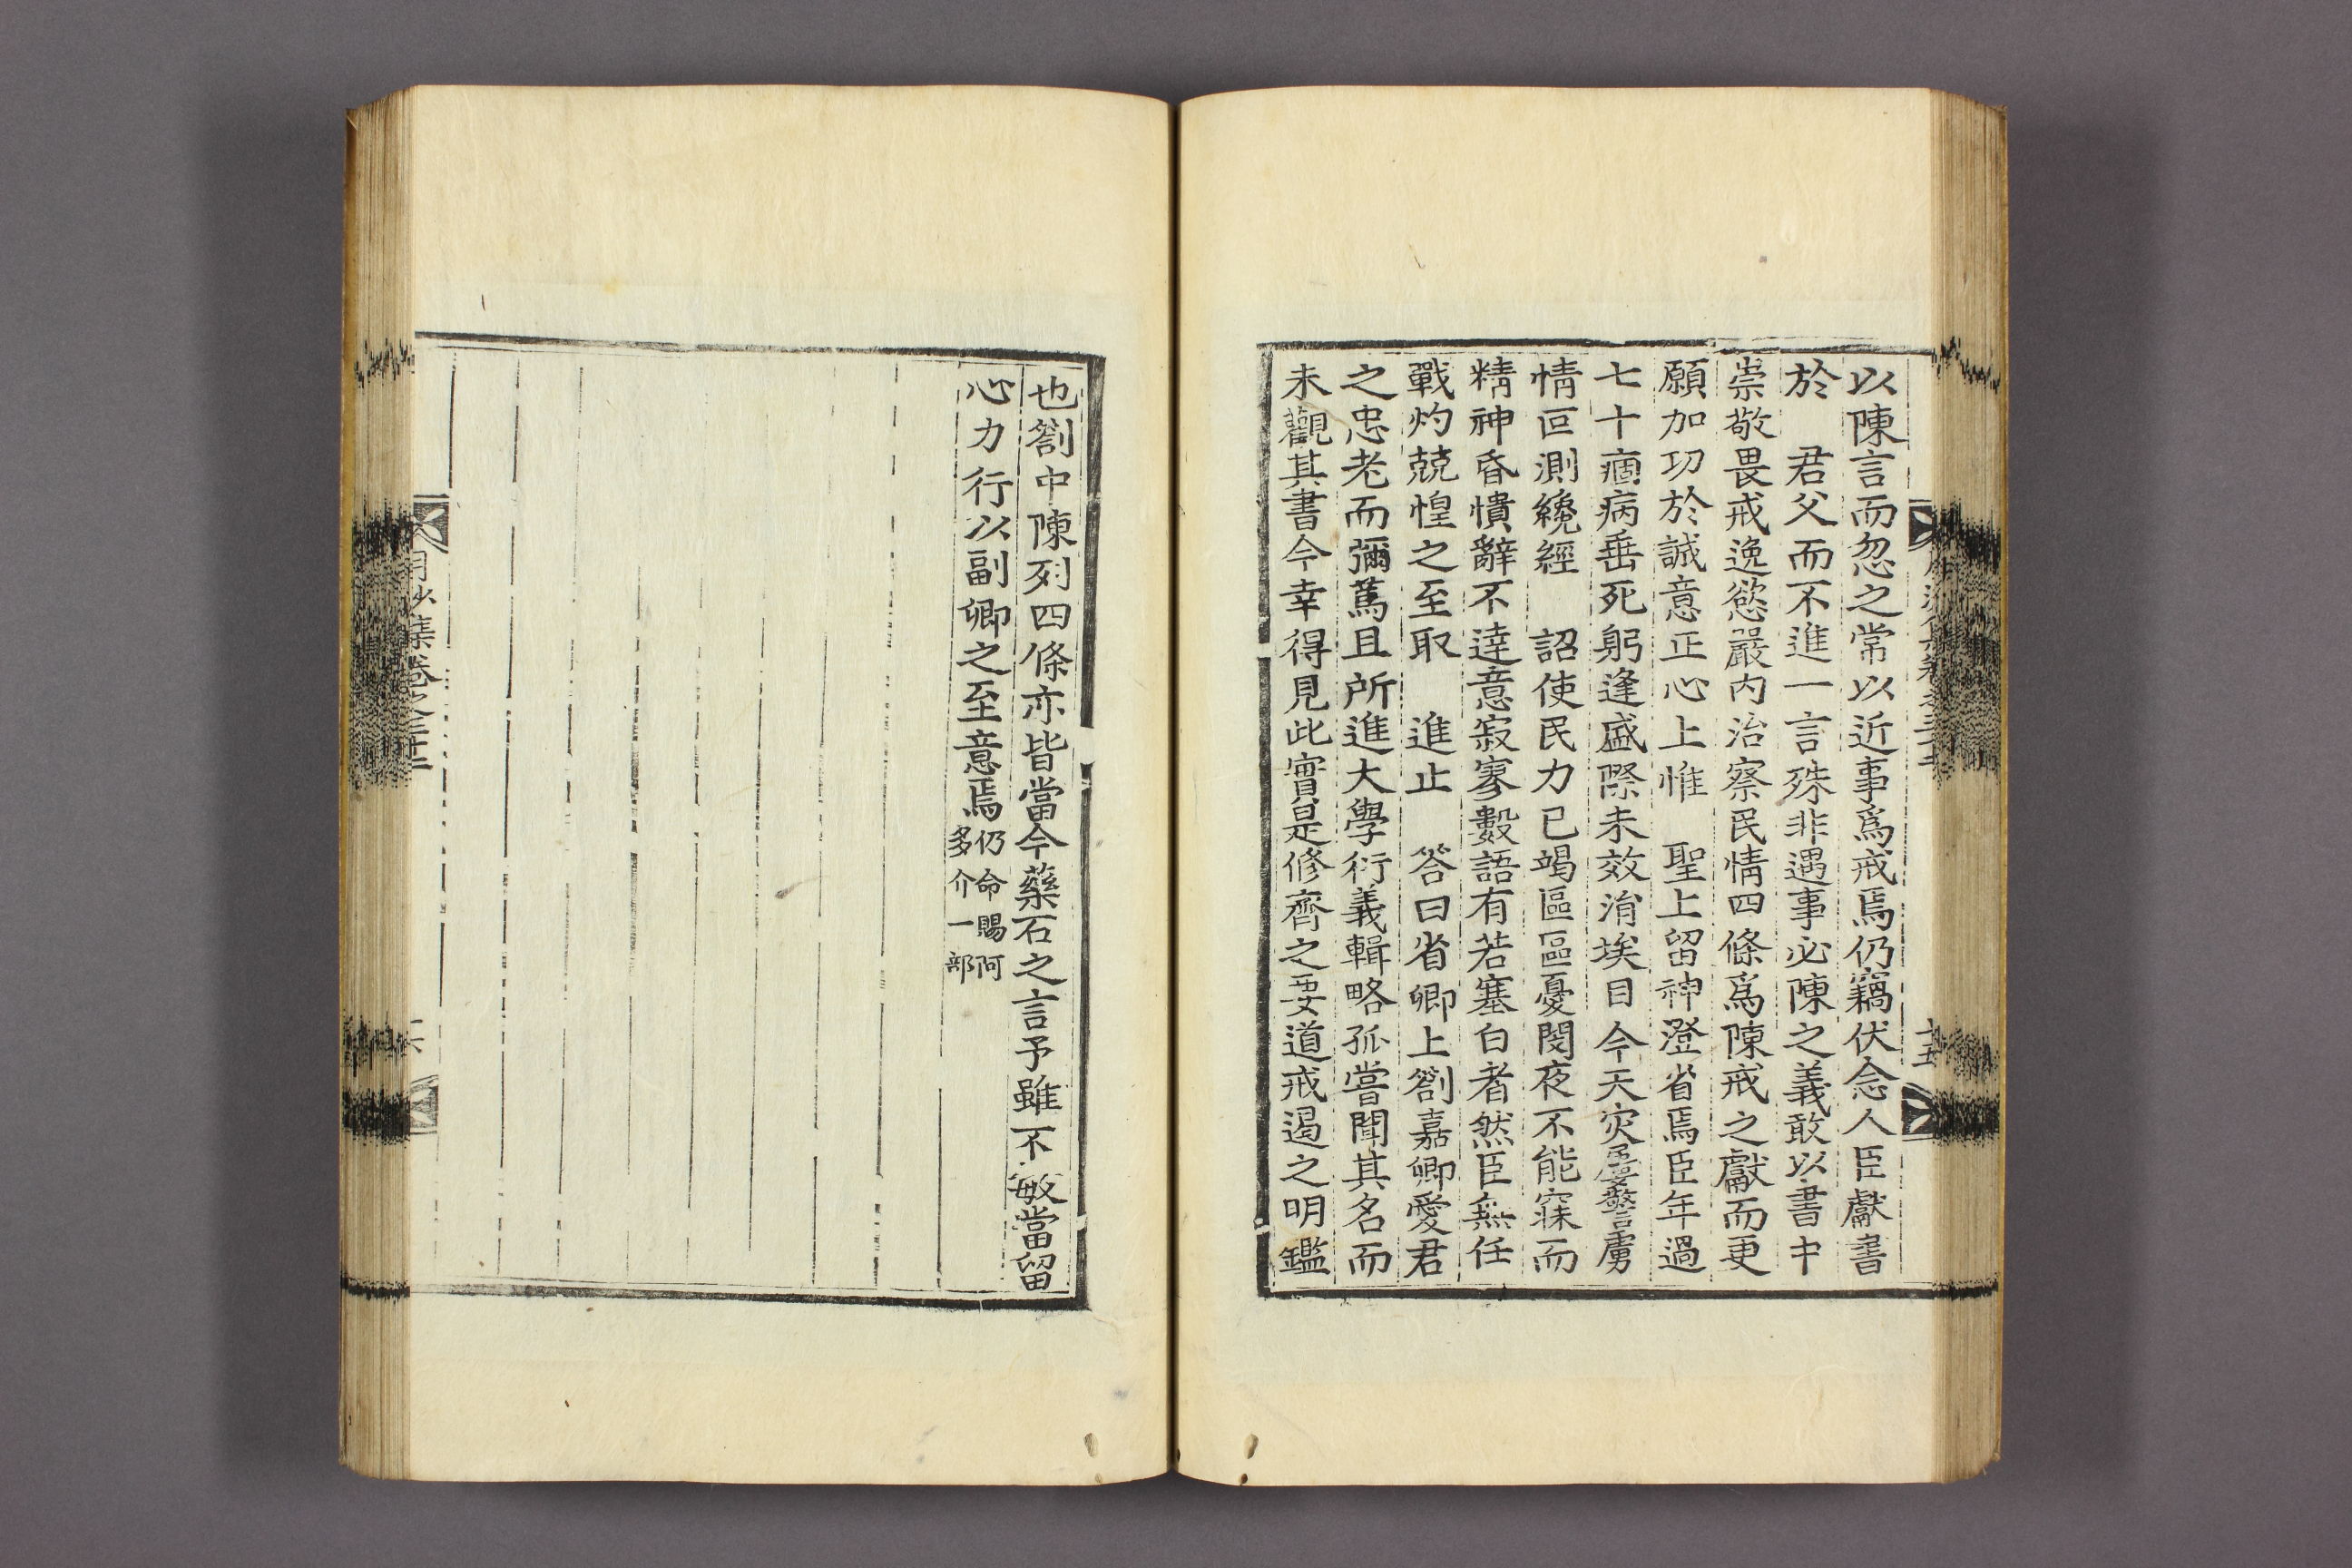 以陳言而忽之常以近事爲戒焉仍竊伏念人臣獻書
於　君父而不進一言殊非遇事必陳之義敢以書中
崇敬畏戒逸慾嚴內治察民情四條爲陳戒之獻而更
願加功於誠意正心上惟　聖上留神澄省焉臣年過
七十痼病垂死躬逢盛際未效涓埃目今天灾屢警虜
情叵測纔經　詔使民力已竭區區憂閔夜不能寐而
精神昏憒辭不達意寂寥數語有若塞白者然臣無任
戰灼兢惶之至取　進止　答曰省卿上箚嘉卿愛君
之忠老而彌篤且所進大學衍義輯略孤嘗聞其名而
未觀其書今幸得見此實是修齊之要道戒遏之明鑑
也箚中陳列四條亦皆當今藥石之言予雖不敏當留
心力行以副卿之至意焉仍命賜阿
多介一部
月沙集卷之三十二
十五